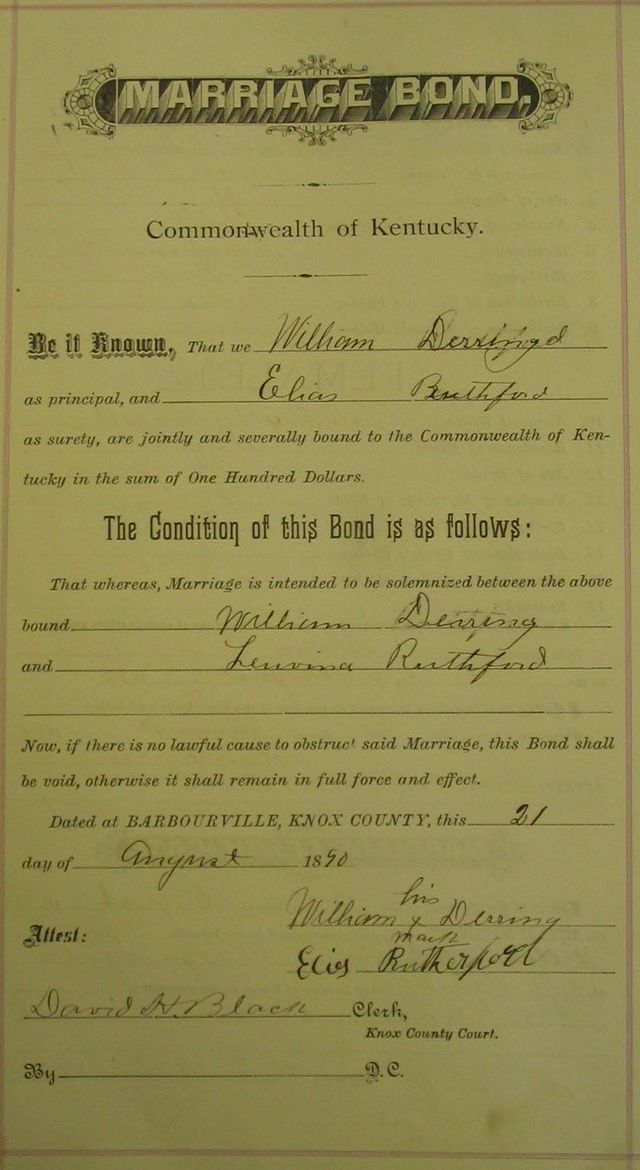 MARRIAGE BOND,
Commonwealth of Kentucky.
Be it Known, That we William Derringd
as principal, and Elias Ruthford
as surety, are jointly and severally bound to the Commonwealth of Ken-
tucky in the sum of One Hundred Dollars.
The Condition of this Bond is as follows:
That whereas, Marriage is intended to be solemnized between the above
bound William Derring
and Leuvina Ruthford
Now, if there is no lawful cause to obstruct said Marriage, this Bond shall
be void, otherwise it shall remain in full force and effect.
Dated at BARBOURVILLE, KNOX COUNTY, this 21
day of August 1890
his
William x Derring
mark
Attest:
Elias Rutherford
David H. Black Clerk,
Knox County Court.
By D.C.